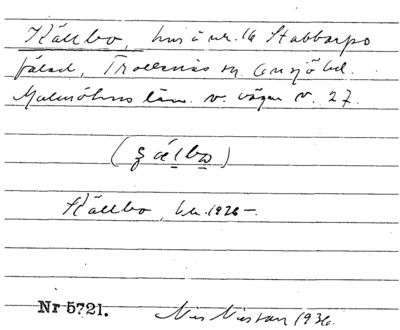 Källbo, hus å nr. 16 Stabbarps
fälad, Trollenäs sn. Onsjö hd.
Malmöhus län. v. vägen v. 27.
(ʒ älbω)
Källbo, bb. 1926–.
Nr 5721. Nils Nilsson 1936.